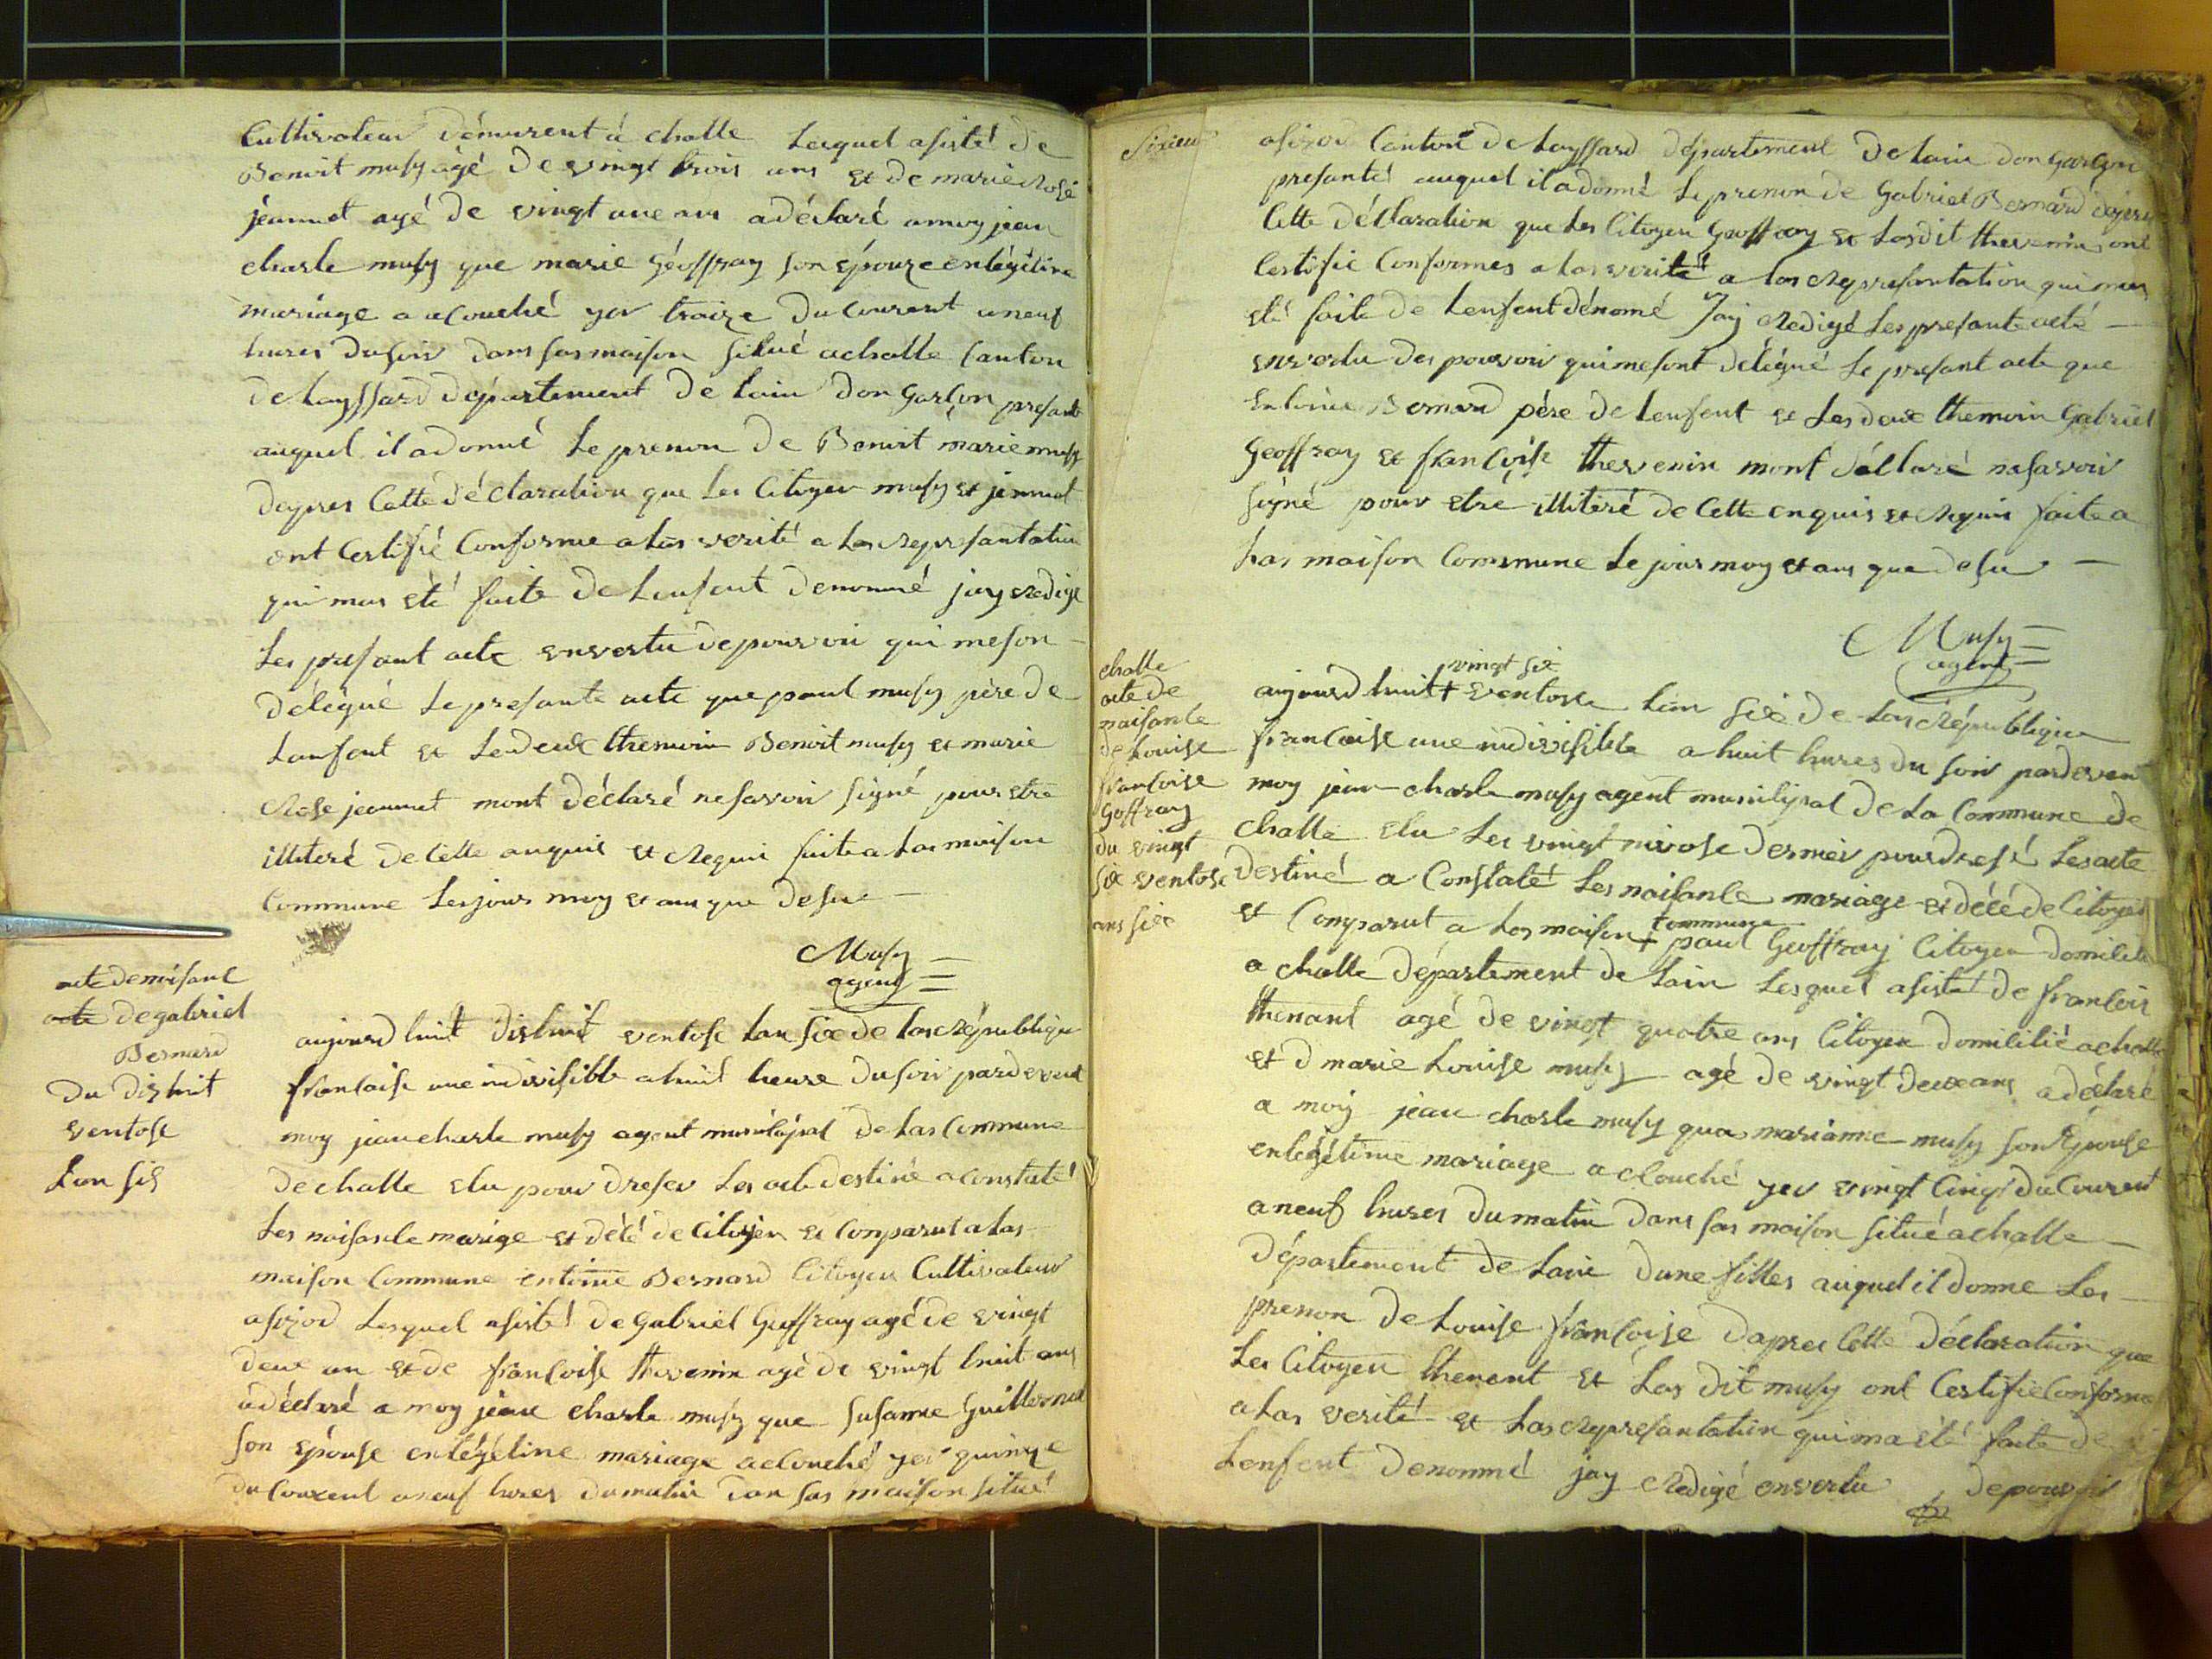 Cultivateur démurent à challe Lequel asisté de
Benoit musy agé de vingt trois ans et de marie Rose
jeannet agé de vingt une ans a déclaré a moy jean
charle musy que marie Géoffray son épouze en légitime
mariage a acouché yer traize du courent a neuf
hures du soir dans sas maison situé a challe Canton
de Leyssard département de Lain don Garçon presant
auquel il a donné Le prenon de Benoit marie musy
depres Cette déclaration que Les Citoyen musy et jennet
ont Certifié Conforme a Las verité a Las Represantation
qui mas été faite de Lenfent denommé jay Redigé
Les presant acte en vertu de pouvoir qui me son
délégué Le presante acte que paul musy père de
Lanfent et Les deux themoin Benoit musy et marie
Rose jeannet mont déclaré ne savoir signé pour etre
illiteré de Cette anquis et Requis faite a Las maison
Commune Les jours moy et ans que desu
Musy
agent
acte de naisanc
acte de gabriel
Bernard
du dishuit
ventose
Lan sis
aujourd huit dishuit ventose Lan six de Las Républiqu
francaise une indivisible a huit heure du soir pardevent
moy jean charle musy agent municipal de Las Commune
de challe elu pour dreser Les acte destiné a constaté
Les naisance marige et décé de Citoyen et Comparut a Las
maison Commune entoine Bernard Citoyen Cultivateur
a sizod Lesquel asisté de Gabriel Geffray agé de vingt
deux an et de francoise thevenin agé de vingt huit ans
a déclaré a moy jean charle musy que susanne Guillermet
son épouse en légétine mariage a couché yer quinze
du Courent a neuf hures du matin dan sas maison situé
a sizod Canton de Leyssard département de Lain don Garçon
presanté auquel il a donné Le prenon de Gabriel Bernard depres
Cette déclaration que Les Citoyen Geoffray et Lasdit thevenin ont
Certifié Conformes a Las verité a Las Represantation qui mas
été faite de Lenfent dénomé Jay Redigé Les presante acté
en vertu des pouvoir qui me sont délégué Le presant acte que
Entoine Bernard père de Lenfent et Les deux themoin Gabriel
Geoffray et francoise thevenin mont déclaré ne savoir
signé pour etre illiteré de Cette enquis et Requis faite a
Las maison Commune Le jour moy et ans que desu
Musy
agent
challe
acte de
naisance
de Louise
francoise
Goffray
du vingt
six ventose
ans six
aujourd huit + vingt six ventose Lan six de Las Républiqu
francaise une indivisible a huit hures du soir pardevent
moy jean charle musy agent municipal de La Commune de
challe elu Les vingt nivose dernier pour dresé Les acte
destiné a Constaté Les naisance mariage et décé de Citoyen
et Comparut a Las maison + commune paul Geoffray Citoyen domicilie
a challe département de Lain Lesquel asisté de francois
thenant agé de vingt quatre ans Citoyen domicilié a challe
et d marie Louise musy agé de vingt deux ans a déclaré
a moy jean charle musy que marianne musy son Epouse
en légétime mariage a couché yer vingt Cinq du Courent
a neuf hures du matin dans sas maison situé a challe
département de Lain dune filles auquel il donne Les
prenon de Louise francoise dapres Cette déclaration que
Les Citoyen thenent et Las dit musy ont Certifie Conforme
a Las verité et Las Represantation qui ma été faite de
Lenfent denommé jay Redigé en vertu de pouvoir